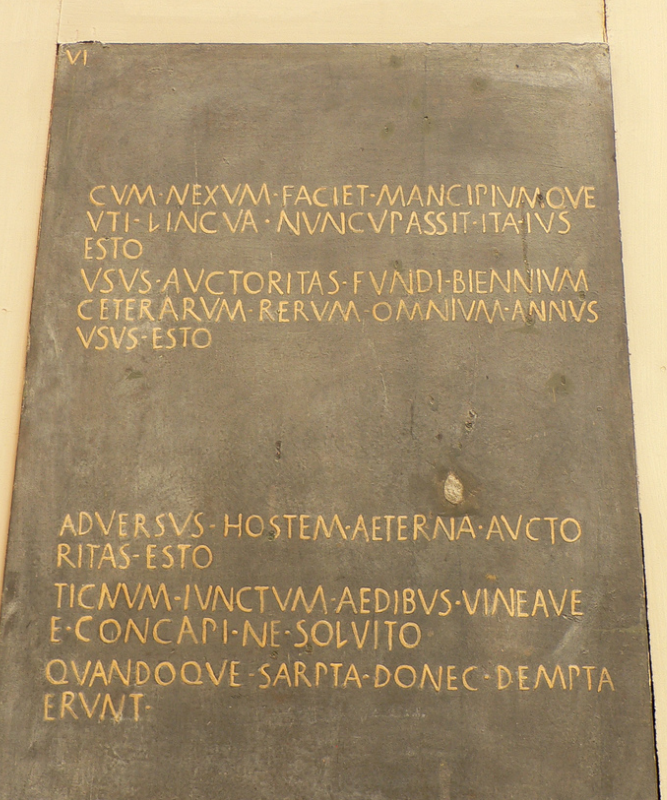 VI
CVM·NEXVM·FACIET·MANCIPIVMQVE
VTI·LINGVA·NVNCVPASSIT·ITA·IVS
ESTO
VSVS·AVCTORITAS·FVNDI·BIENNIVM
CETERARVM·RERVM·OMNIVM·ANNVS
VSVS·ESTO
ADVERSVS·HOSTEM·AETERNA·AVCTO
RITAS·ESTO
TIGNVM·IVNCTVM·AEDIBVS·VINEAVE
E·CONCAPI·NE·SOLVITO
QVANDOQVE·SARPTA·DONEC·DEMPTA
ERVNT·